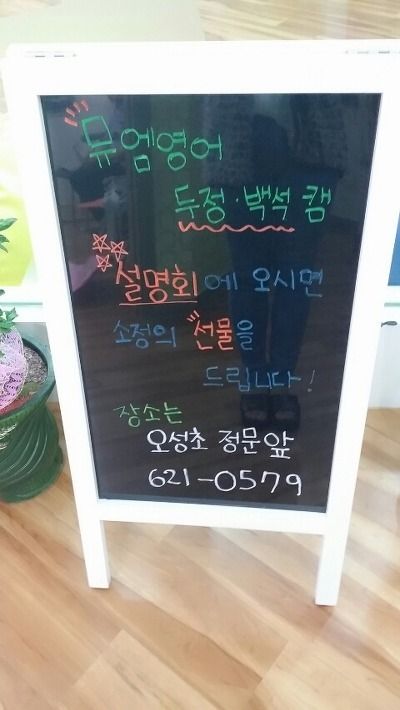 뮤엠영어
두정·백석 캠
설명회에 오시면
소정의 선물을
드립니다!
장소는
오성초 정문앞
621-0579